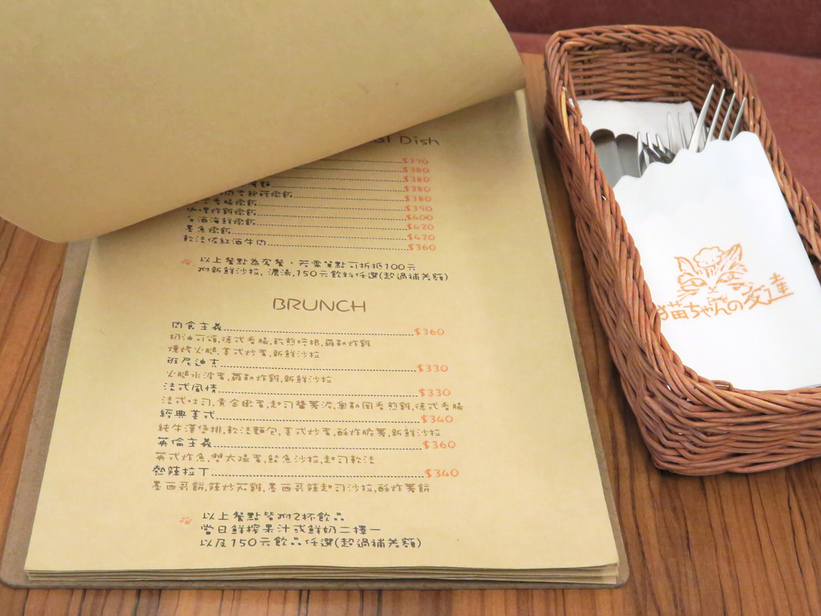 Dish
$370
$380
$380
$380
$380
$390
$400
墨魚燉飯 $420
$420
軟法佐紅酒牛肉 $360
以上餐點為套餐,若單餐點可折抵100元
附新鮮沙拉,濃湯,150元飲料任選(超過補差額)
BRUNCH
肉食主義 $360
奶油可頌,德式香腸,軟煎培根,羅勒炸雞
燻烤火腿,美式炒蛋,新鮮沙拉
班尼迪克 $330
火腿水波蛋,羅勒炸雞,新鮮沙拉
法式風情 $330
法式吐司,黃金嫩蛋,起司醬薯泥,奧勒岡香煎雞,德式香腸
經典美式 $340
純牛漢堡排,軟法麵包,美式炒蛋,酥炸脆薯,新鮮沙拉
英倫主義 $360
英式炸魚,雙太陽蛋,鮭魚沙拉,起司軟法
熱辣拉丁 $340
墨西哥餅,辣炒茄雞,墨西哥辣起司沙拉,酥炸薯餅
以上餐點皆附2杯飲品
當日鮮榨果汁或鮮奶二擇一
以及150元飲品任選(超過補差額)
猫ちゃんの友達